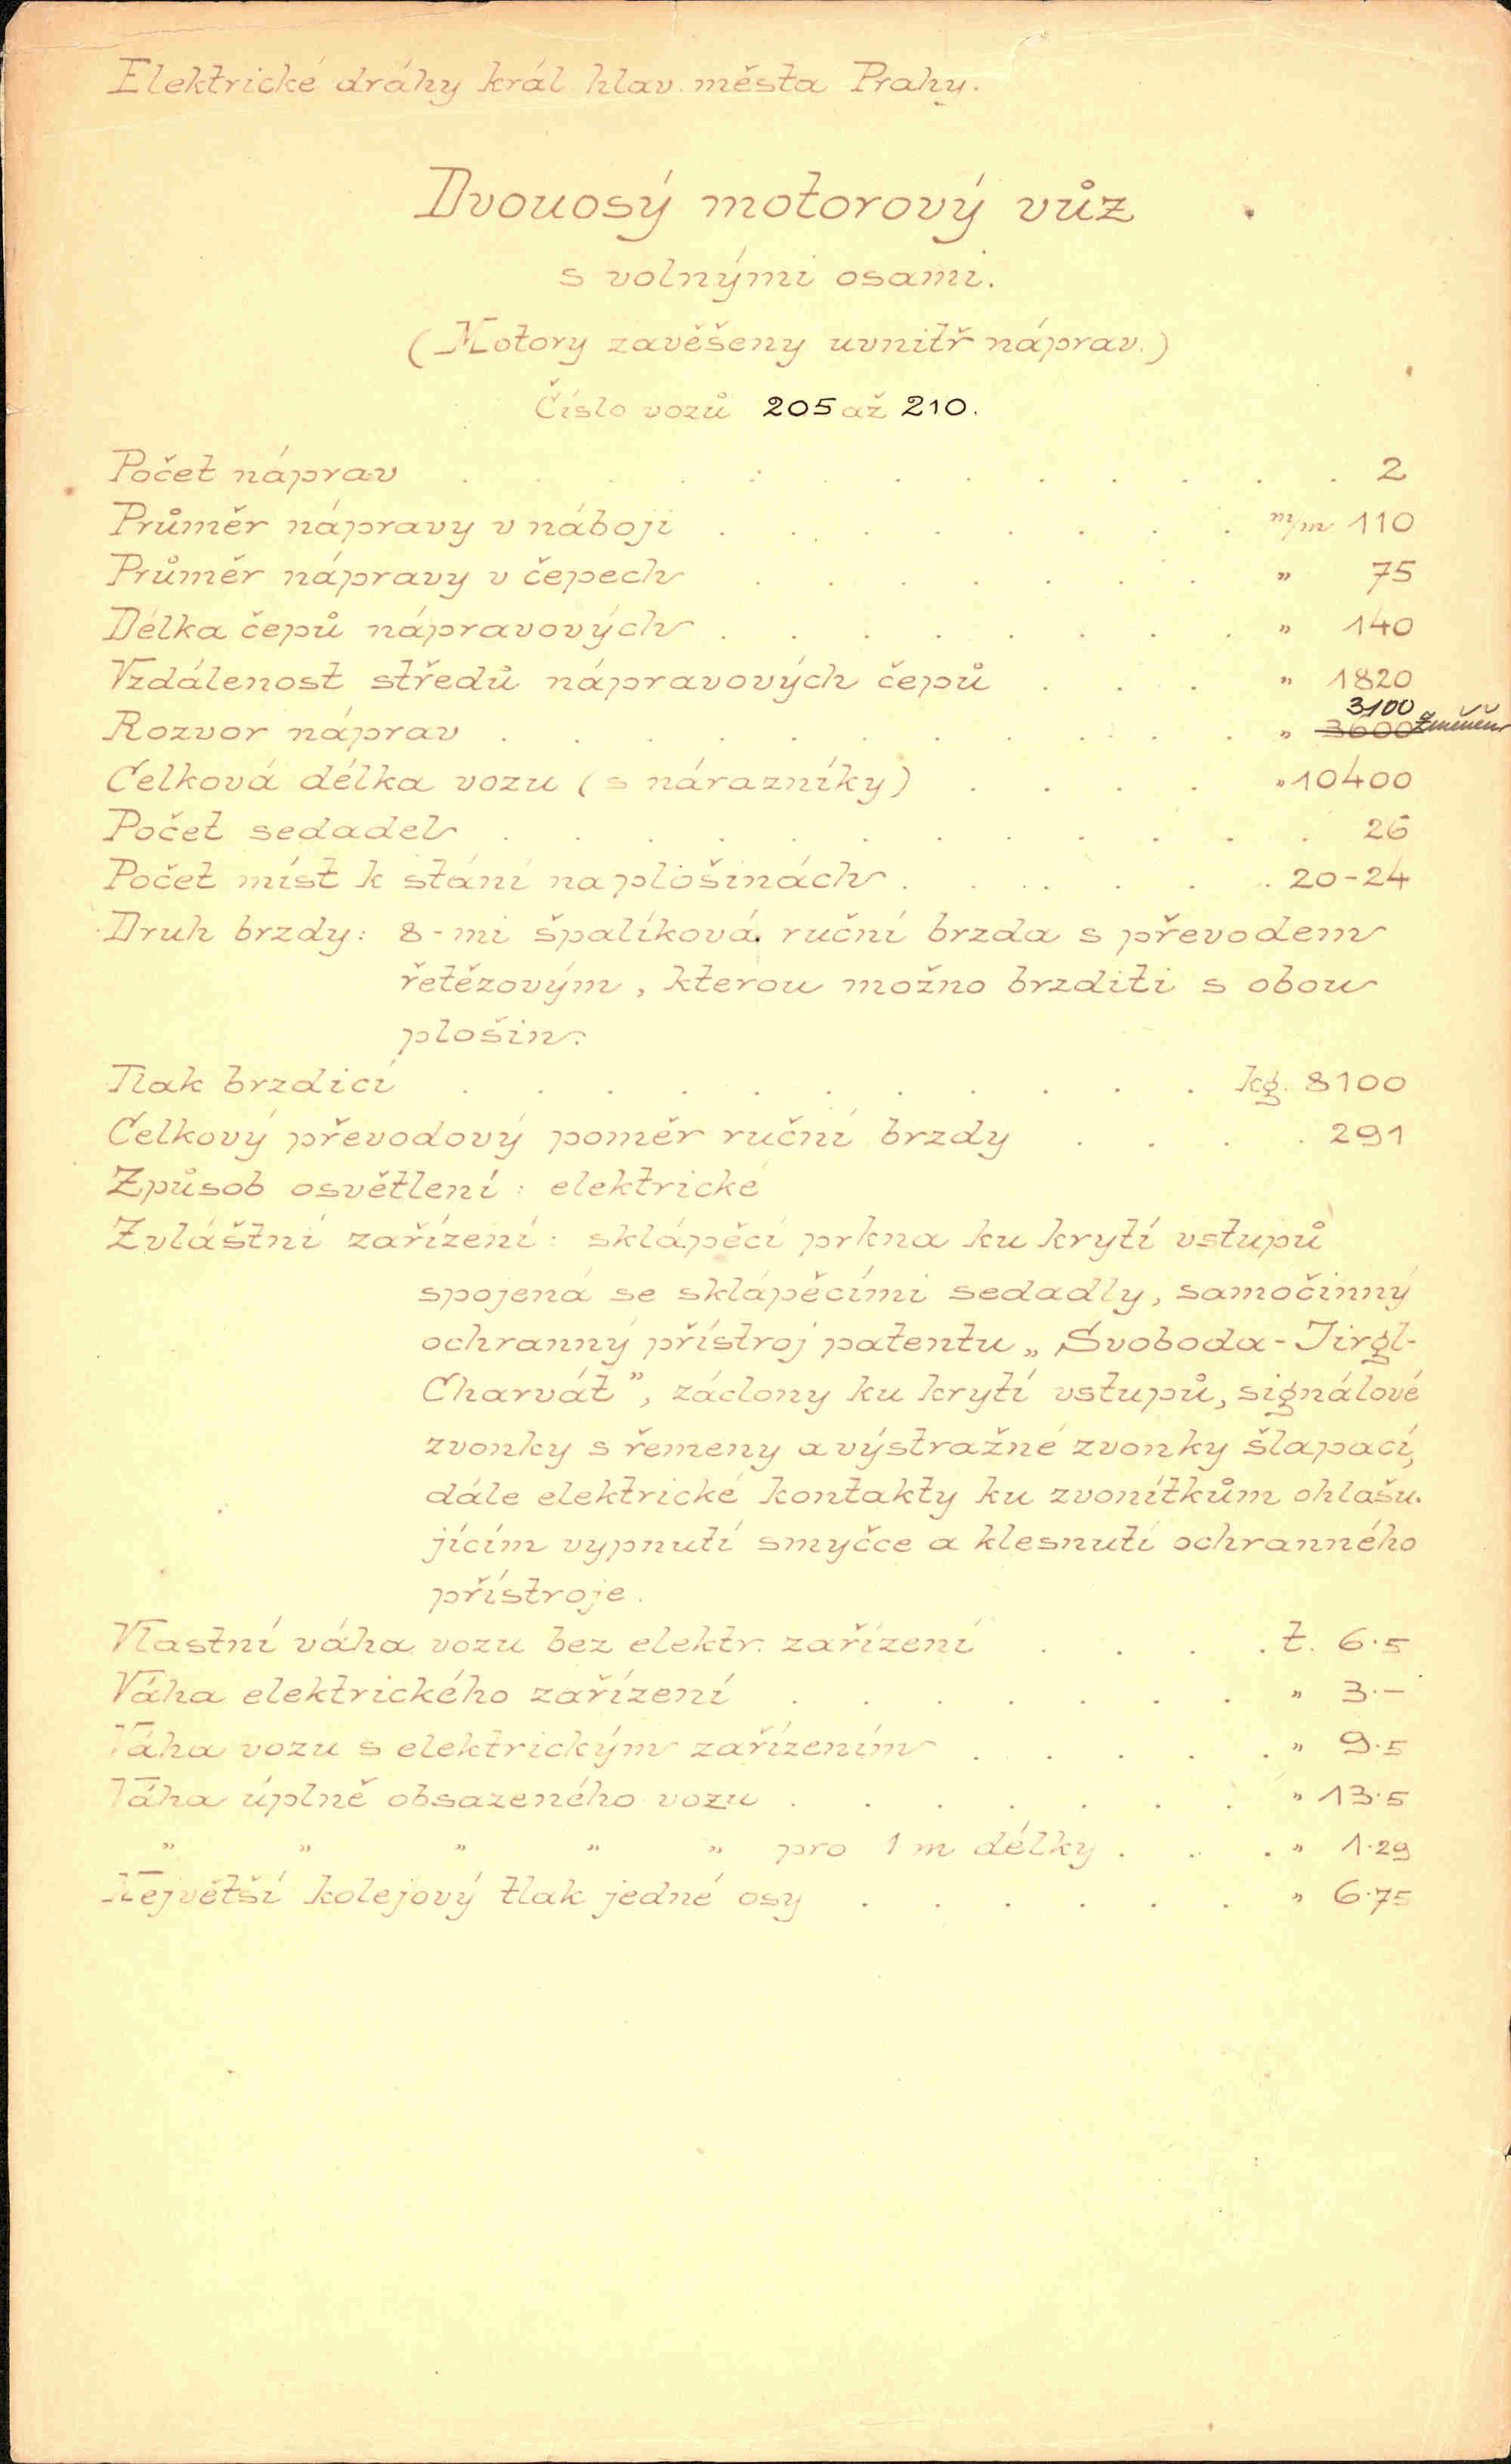 Elektrické dráhy král. hlav. města Prahy.
Dvouosý motorový vůz
s volnými osami.
(Motory zavěšeny uvnitř náprav.)
Číslo vozů 205 až 210.
Počet náprav . . . . . . . . . . . . . 2
Průměr nápravy v náboji . . . . . . . . m/m 110
Průměr nápravy v čepech . . . . . . . „ 75
Délka čepů nápravových . . . . . . . . „ 140
Vzdálenost středů nápravových čepů . . . „ 1820
3100
Rozvor náprav . . . . . . . . . . . „ 3600 změřeno
Celková délka vozu (s nárazníky) . . . . „ 10400
Počet sedadel . . . . . . . . . . . . 26
Počet míst k stání na plošinách . . . . . . 20-24
Druh brzdy: 8-mi špalíková ruční brzda s převodem
řetězovým, kterou možno brzditi s obou
plošin.
Tlak brzdicí . . . . . . . . . . . kg. 8100
Celkový převodový poměr ruční brzdy . . . . 291
Způsob osvětlení: elektrické
Zvláštní zařízení: sklápěcí prkna ku krytí vstupů
spojená se sklápěcími sedadly, samočinný
ochranný přístroj patentu „Svoboda-Jirgl-
Charvát", záclony ku krytí vstupů, signálové
zvonky s řemeny a výstražné zvonky šlapací,
dále elektrické kontakty ku zvonítkům ohlašu-
jícím vypnutí smyčce a klesnutí ochranného
přístroje.
Vlastní váha vozu bez elektr. zařízení . . . . t. 6·5
Váha elektrického zařízení . . . . . . . „ 3·—
Váha vozu s elektrickým zařízením . . . . . „ 9·5
Váha úplně obsazeného vozu . . . . . . . „ 13·5
„ „ „ „ „ pro 1 m délky . . . „ 1·29
Největší kolejový tlak jedné osy . . . . . . „ 6·75